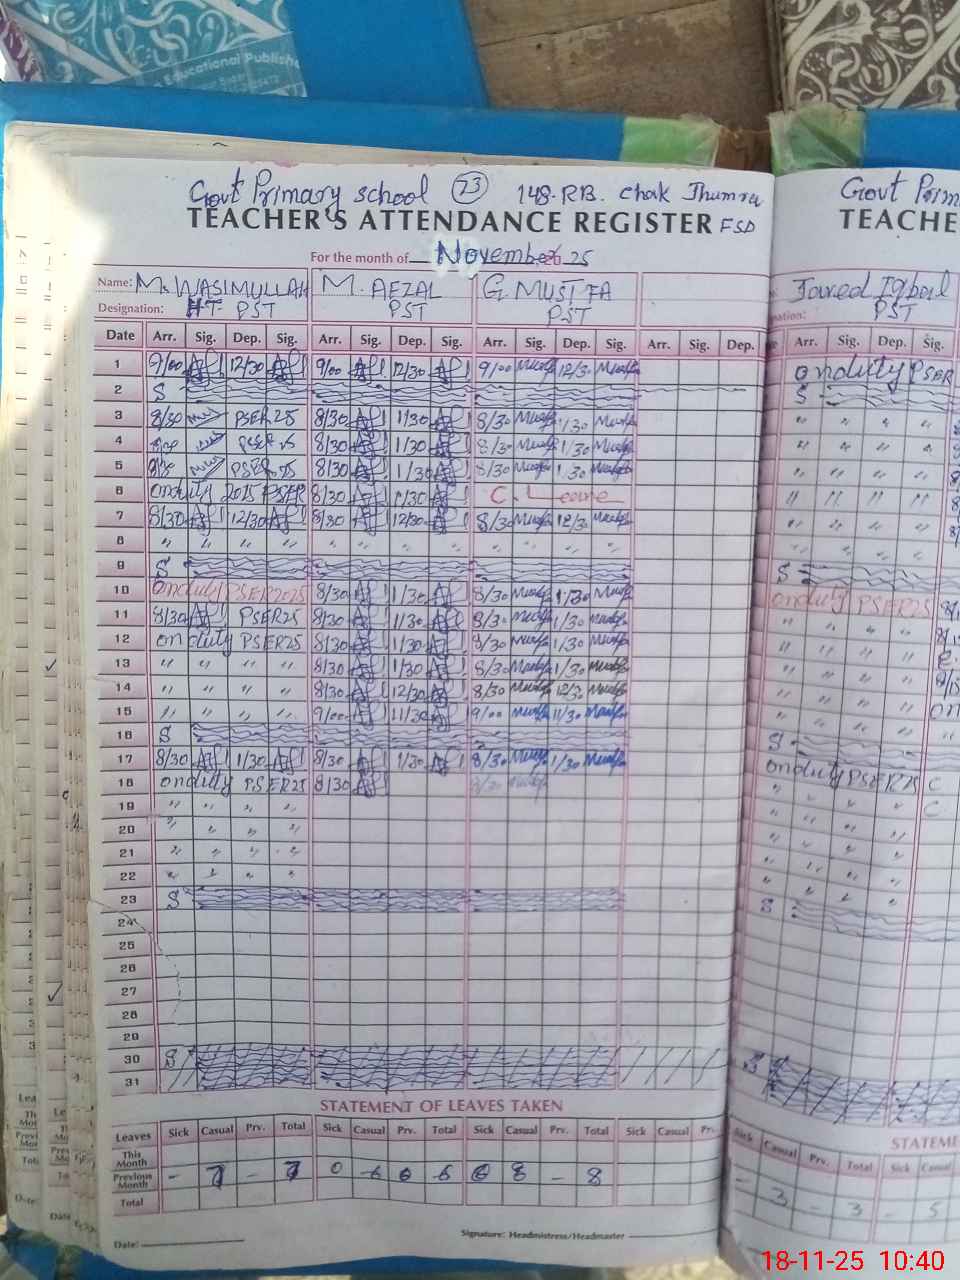 Educational Publishe
Govt Primary school 73 148-RB. Chak Jhumra
TEACHER'S ATTENDANCE REGISTER FSD
For the month of November 25
Name: M. WASIMULLAH M. AFZAL G. MUSTFA
Designation: HT- PST PST PST
Date Arr. Sig. Dep. Sig. Arr. Sig. Dep. Sig. Arr. Sig. Dep. Sig. Arr. Sig. Dep.
1 9/00 12/30 9/00 12/30 9/00 12/30
2 S
3 8/30 PSER 25 8/30 1/30 8/30 1/30
4 PSER 25 8/30 1/30 8/30 1/30
5 8/30 PSER 25 8/30 1/30 8/30 1/30
6 onduty 2025 PSER 8/30 1/30 C. Leave
7 8/30 12/30 8/30 12/30 8/30 12/30
8 " " " " " " " " " " " "
9 S
10 onduty PSER2025 8/30 1/30 8/30 1/30
11 8/30 PSER25 8/30 1/30 8/30 1/30
12 onduty PSER25 8/30 1/30 8/30 1/30
13 " " " " 8/30 1/30 8/30 1/30
14 " " " " 8/30 12/30 8/30 12/30
15 " " " " 9/00 11/30 9/00 11/30
16 S
17 8/30 1/30 8/30 1/30 8/30 1/30
18 onduty PSER25 8/30 8/30
19 " " " "
20 " " " "
21 " " " "
22 " " " "
23 S
24
25
26
27
28
29
30 S
31
STATEMENT OF LEAVES TAKEN
Leaves Sick Casual Prv. Total Sick Casual Prv. Total Sick Casual Prv. Total Sick Casual Prv.
This Month
Previous Month - 7 - 7 0 6 0 6 0 8 - 8
Total
Date: Signature: Headmistress/Headmaster
Govt Prim
TEACHE
Javed Iqbal
PST
Arr. Sig. Dep. Sig.
onduty PSER
S
" " " "
" " " "
" " " "
" " " "
" " " "
" " " "
S
onduty PSER25
" " " "
" " " "
" " " "
" " " "
" " " "
S
onduty PSER25 C
" " " " C
" " " "
" " " "
" " " "
" " " "
S
STATEME
Sick Casual Prv. Total Sick Casual
- 3 - 3 - 5
18-11-25 10:40